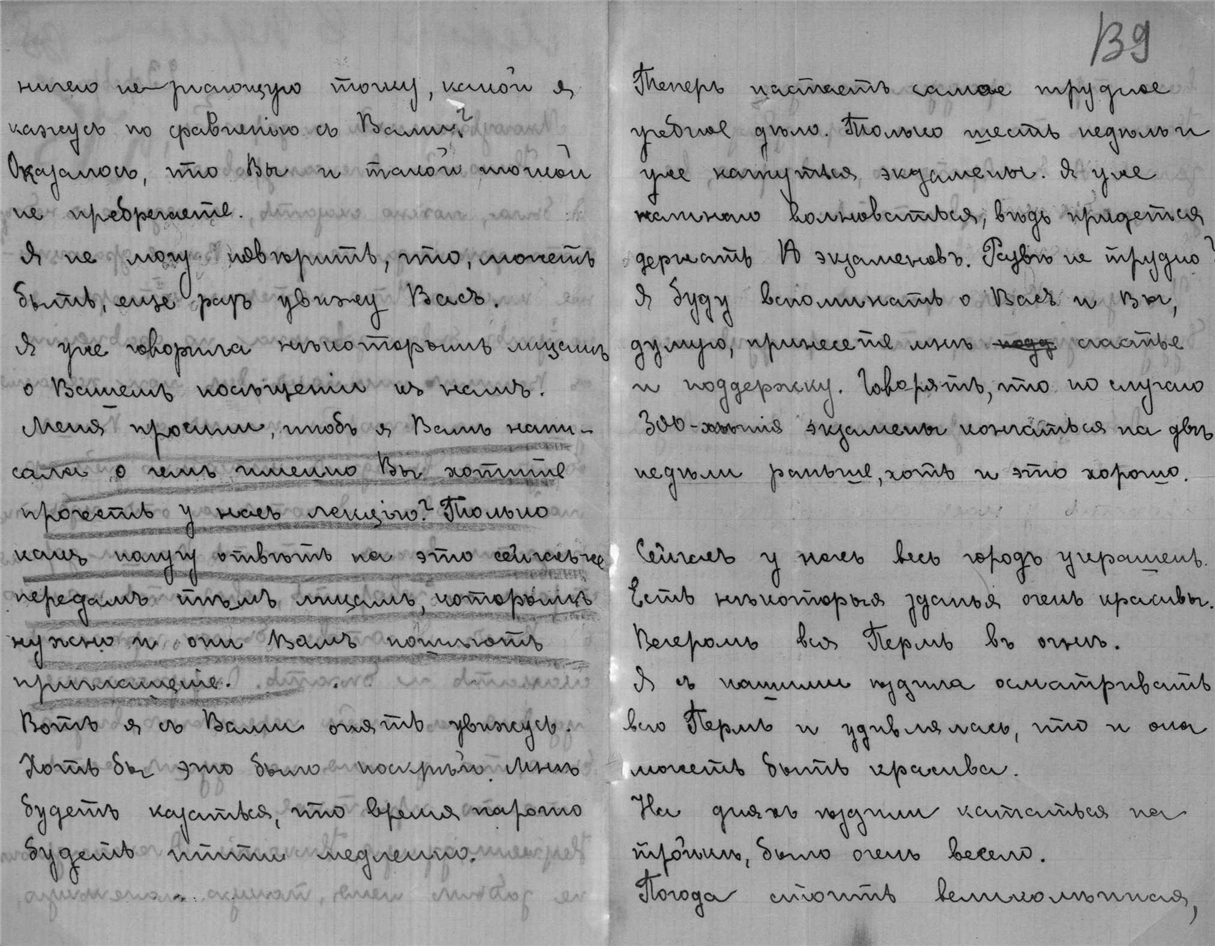 ничего не знающую точку, какой я
кажусь по сравненью съ Вами?
Оказалось, что Вы и такой точкой
не пребрегаете.
Я не могу повѣрить, что, можетъ
быть, еще разъ увижу Васъ.
Я уже говорила нѣкоторымъ лицамъ
о Вашемъ посѣщеніи къ намъ.
Меня просили, чтобъ я Вамъ напи-
сала о чемъ именно Вы хотите
прочесть у насъ лекцію? Только
какъ получу отвѣтъ на это сейчасъ же
передамъ тѣмъ лицамъ, которымъ
нужно и они Вамъ пошлютъ
приглашеніе.
Вотъ я съ Вами опять увижусь.
Хоть бы это было поскрѣй. Мнѣ
будетъ казаться, что время нарочно
будетъ итти медленно.
139
Теперь настаетъ самое трудное
учебное дѣло. Только шесть недѣль и
уже начнутся экзамены. Я уже
начинаю волноваться, вѣдь придется
держать 14 экзаменовъ. Развѣ не трудно?
Я буду вспоминать о Васъ и Вы,
думаю, принесете мнѣ счастье
и поддержку. Говорятъ, что по случаю
300-лѣтія экзамены кончаться на двѣ
недѣли раньше, хоть и это хорошо.
Сейчасъ у насъ весь городъ украшенъ.
Есть нѣкоторыя зданья очень красивы.
Вечеромъ вся Пермь въ огнѣ.
Я съ нашими ѣздила осматривать
всю Пермь и удивлялась, что и она
можетъ быть красива.
На дняхъ ѣздили кататься на
тройкѣ, было очень весело.
Погода стоитъ великолѣпная,